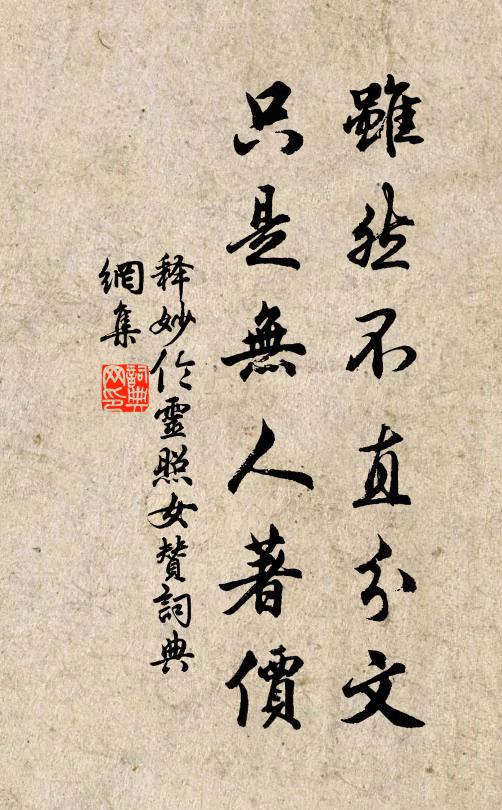 雖然不直分文
只是無人著價
释妙伦靈照女贊詞典
網集
詞典网印